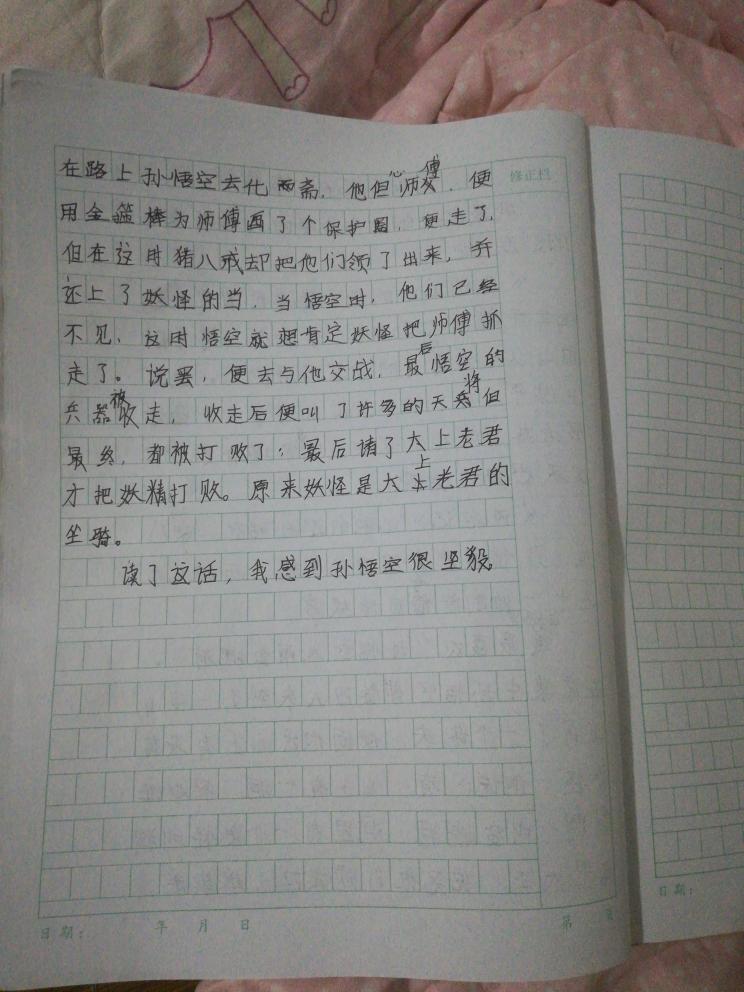 在路上孙悟空去化两斋，他但心师傅，便
修正栏
用金箍棒为师傅画了个保护圈，便走了，
但在这时猪八戒却把他们领了出来，并
还上了妖怪的当，当悟空时，他们已经
不见，这时悟空就想肯定妖怪把师傅抓
走了。说罢，便去与他交战，最后悟空的
兵器被收走，收走后便叫了许多的天兵将但
最终，都被打败了；最后请了大上老君
才把妖精打败。原来妖怪是大上老君的
坐骑。
读了这话，我感到孙悟空很坚毅。
日期： 年 月 日 第 页
日期：